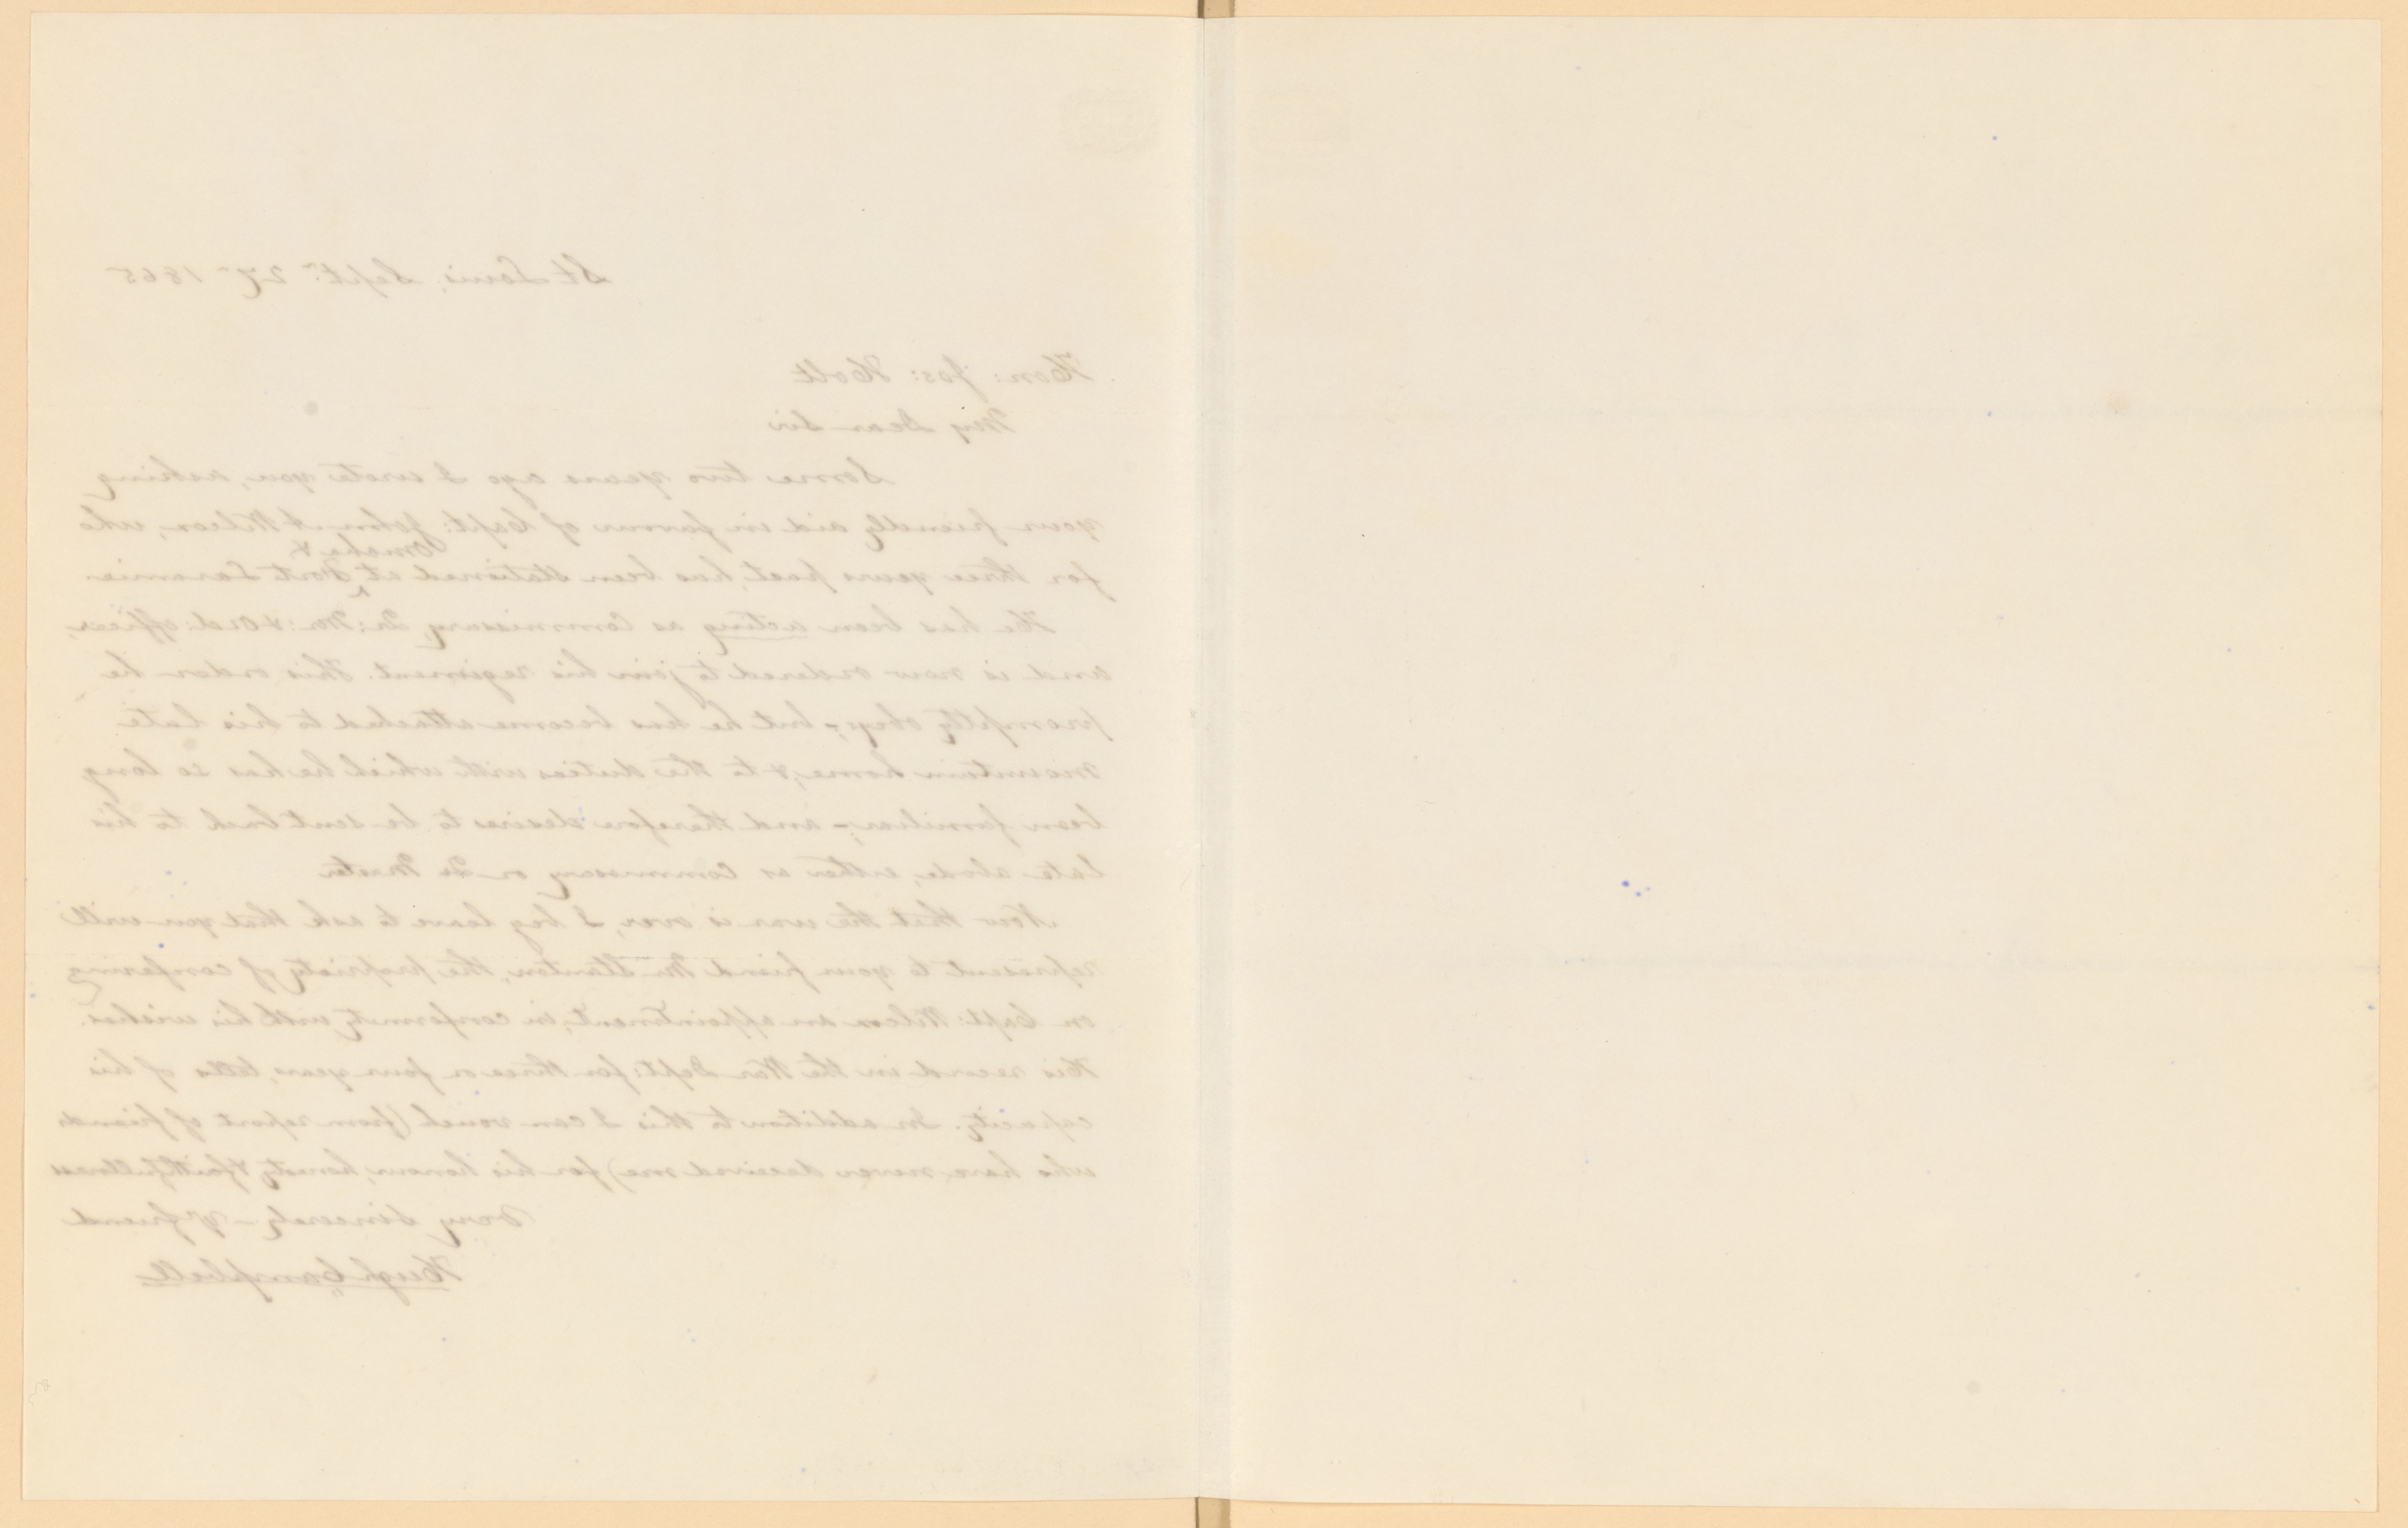 St Louis, Sept: 27 1865
Hon: Jos: Holt
My Dear Sir
Some two years ago I wrote you, asking
your friendly aid in favour of Capt: John A Wilcox, who
for three years past, has been stationed at Omaha & Fort Laramie
He has been acting as Commissary, Qr: M: & Ord: officer,
and is now ordered to join his regiment. This order he
promptly obeys; but he has become attached to his late
mountain home, & to the duties with which he has so long
been familiar; – and therefore desires to be sent back to his
late abode, either as Commissary or Qr Master
Now that the war is over, I beg leave to ask that you will
represent to your friend Mr Stanton, the propriety of conferring
on Capt: Wilcox an appointment, in conformity with his wishes.
His record in the War Dept: for three or four years, tells of his
capacity. In addition to this I can vouch (from report of friends
who have never deceived me) for his honour, honesty & faithfulness
Very Sincerely – Yr friend
Hugh Campbell